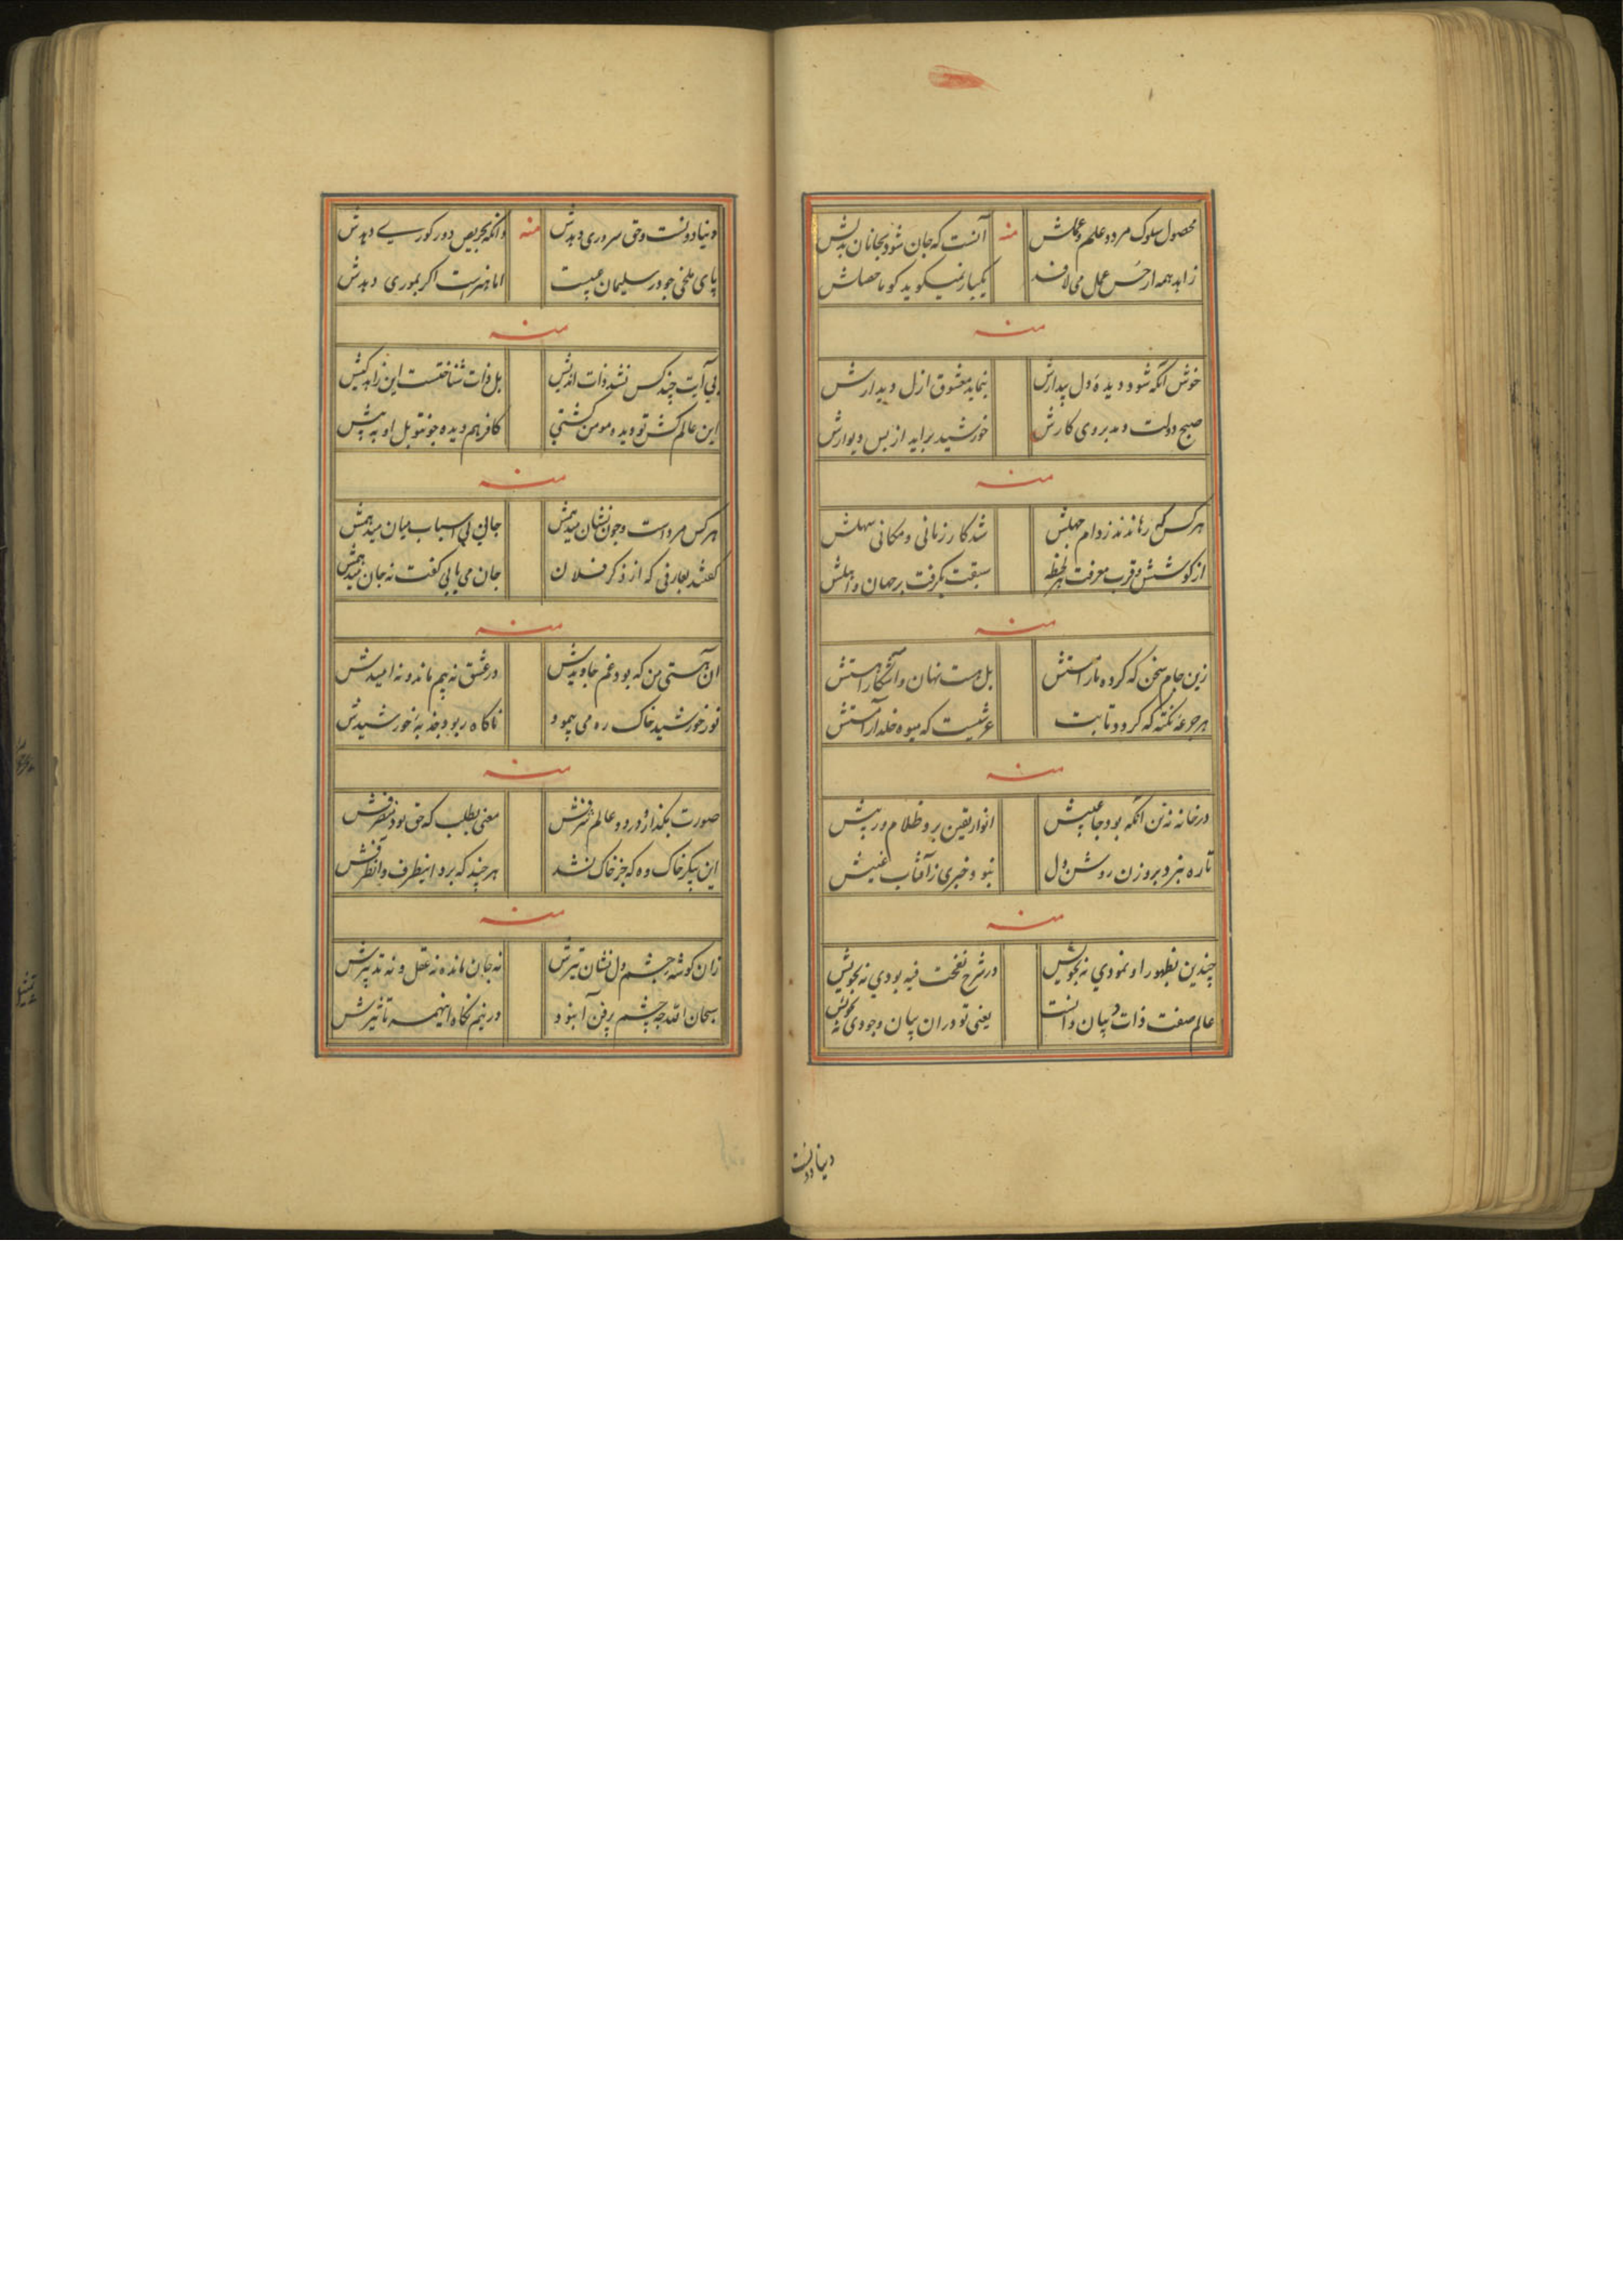 محصول سلوک مرد و علم و عملش منه آنست که جان شود بجانان بدلش
زاهد همه از حسن عمل می لافد یکبار نمیکوید کو ماحصلش
منه
خوش آنکه شود دیدهٔ دل بیدارش بنماید معشوق ازل دیدارش
صبح دولت دمد بروی کارش خورشید براید از پس دیوارش
منه
هر کس که رهانند ز دام جهلش شد کار زمانی و مکانی سهلش
از کوشش و قرب معرفت هر لحظه سبقت بگرفت بر جهان و اهلش
منه
زین جام سخن که کرده ما را مستش بل مست نهان و آشکارا مستش
هر جرعه نکته که کردد ثابت عرشیست که میوه خلد آراستش
منه
در خانه تن آنکه بود جا پیش انوار یقین برو ظلام در پیش
تا ره نبرد بروزن روشن دل نبود خبری ز آفتاب غیبش
منه
چندین بظهور او نمودي نه بخویش در شرح نفخت فیه بودي نه بخویش
عالم صفت ذات در بیان دانست یعنی تو در ان بیان وجودی نه بخویش
دنیا دونست
دنیا دونست و حق سروری دهدش منه وانکه بحریص دور کوری دهدش
پای ملخی جو در سلیمان عیبست اما هنرست اکر بموری دهدش
منه
بی آیت چند کس نشد ذات اندیش بل ذات شناختست این زاهد کیش
این عالم کش تو دید و مومن کشتی کافر هم دیده جو تو بل او به پیش
منه
هر کس مرد است و جون نشان میدهمش جایی بی اسباب میان میدهمش
کفتند بعارفی که از ذکر فلان جان می یابی کفت نه جان میدهمش
منه
ان هستی من که بود غم جاویدش در عشق نه بیم ماند و نه امیدش
نور خورشید خاک ره می پیمود ناکاه ربود جذبهٔ خورشیدش
منه
صورت بکذار و درد و عالم شرفش معنی بطلب که حق بود معترفش
این پیکر خاک وه که جز خاک نشد هر چند که برد اینطرف و آنطرفش
منه
زان کوشه چشم دل نشان تیرش نه جان مانده نه عقل و نه تدبیرش
سبحان الله چه چشم پر فن آ بنود در نیم نکاه اینهمه تاثیرش